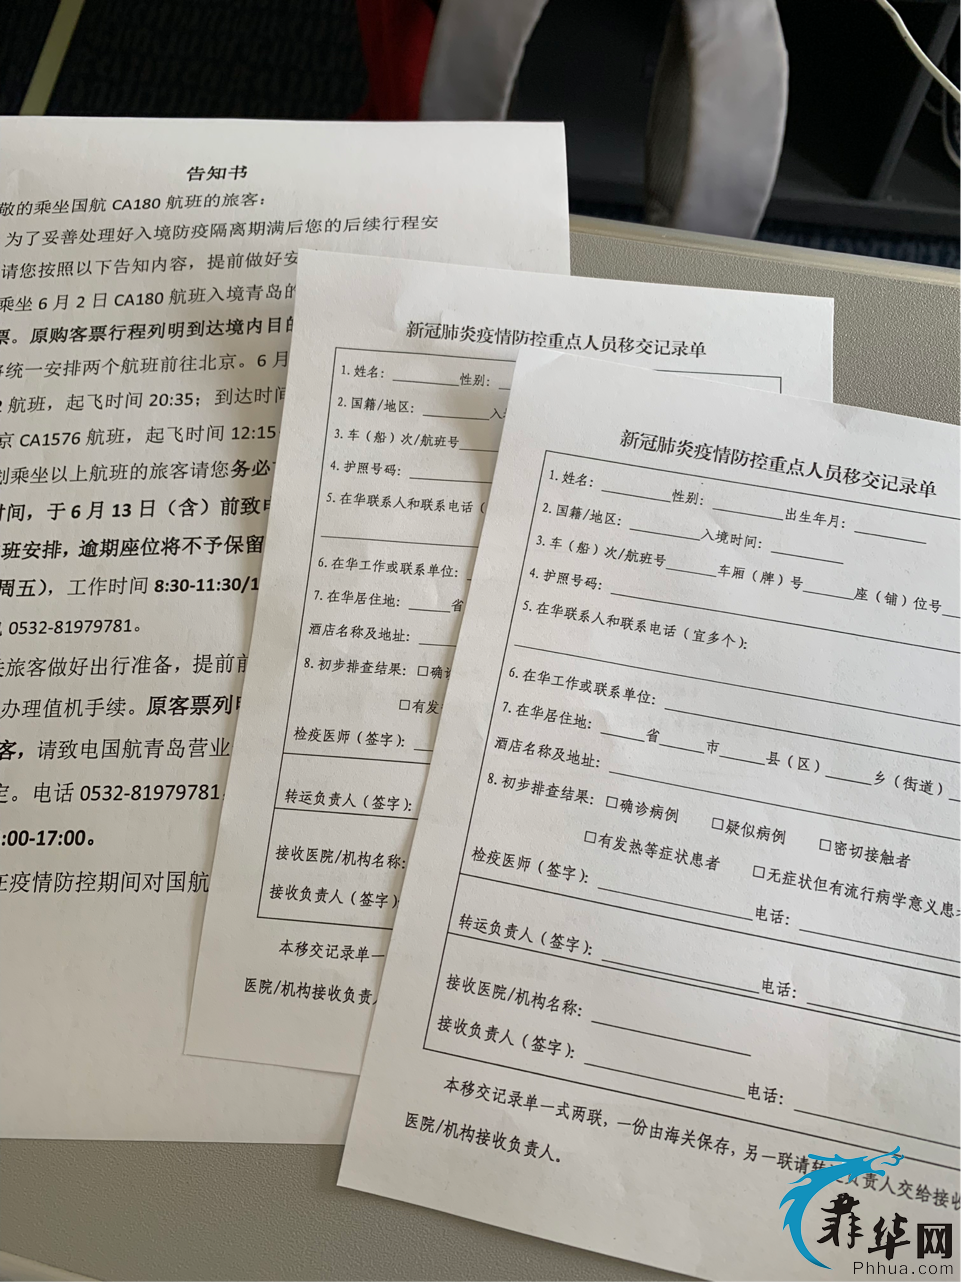 告知书
敬的乘坐国航 CA180 航班的旅客：
为了妥善处理好入境防疫隔离期满后您的后续行程安
请您按照以下告知内容，提前做好安
乘坐 6 月 2 日 CA180 航班入境青岛的
票。原购客票行程列明到达境内目的
将统一安排两个航班前往北京。6 月
2 航班，起飞时间 20:35；到达时间
京 CA1576 航班，起飞时间 12:15
划乘坐以上航班的旅客请您务必
时间，于 6 月 13 日（含）前致电
班安排，逾期座位将不予保留
周五），工作时间 8:30-11:30/1
0532-81979781。
关旅客做好出行准备，提前前
办理值机手续。原客票列明
客，请致电国航青岛营业
定。电话 0532-81979781
:00-17:00。
在疫情防控期间对国航
新冠肺炎疫情防控重点人员移交记录单
1.姓名：________性别：
2.国籍/地区：________入境
3.车（船）次/航班号
4.护照号码：
5.在华联系人和联系电话（
6.在华工作或联系单位：
7.在华居住地：____省
酒店名称及地址：
8.初步排查结果：□确诊
□有发
检疫医师（签字）：
转运负责人（签字）：
接收医院/机构名称：
接收负责人（签字）
本移交记录单一
医院/机构接收负责人
新冠肺炎疫情防控重点人员移交记录单
1.姓名：________性别：________出生年月：________
2.国籍/地区：________入境时间：________
3.车（船）次/航班号______车厢（牌）号______座（铺）位号__
4.护照号码：
5.在华联系人和联系电话（宜多个）：
6.在华工作或联系单位：
7.在华居住地：____省____市____县（区）____乡（街道）__
酒店名称及地址：
8.初步排查结果：□确诊病例 □疑似病例 □密切接触者
□有发热等症状患者 □无症状但有流行病学意义患者
检疫医师（签字）：________电话：________
转运负责人（签字）：________电话：________
接收医院/机构名称：________
接收负责人（签字）：________电话：________
本移交记录单一式两联，一份由海关保存，另一联请转运负责人交给接收
医院/机构接收负责人。
菲华网
Phhua.com